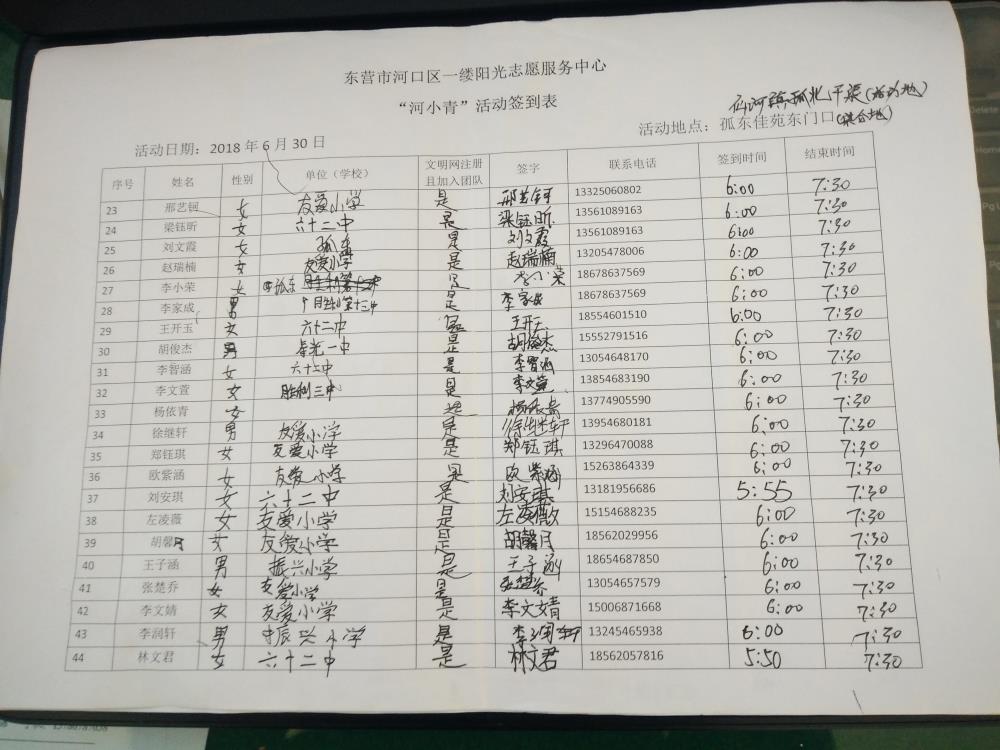 东营市河口区一缕阳光志愿服务中心
“河小青”活动签到表
仙河镇孤北干渠(活动地)
活动日期：2018 年 6 月 30 日 活动地点：孤东佳苑东门口(集合地)
序号 姓名 性别 单位（学校） 文明网注册且加入团队 签字 联系电话 签到时间 结束时间
23 邢艺钶 女 友爱小学 是 邢艺钶 13325060802 6:00 7:30
24 梁钰昕 女 六十二中 是 梁钰昕 13561089163 6:00 7:30
25 刘文霞 女 孤东 是 刘文霞 13561089163 6:00 7:30
26 赵瑞楠 女 友爱小学 是 赵瑞楠 13205478006 6:00 7:30
27 李小荣 女 孤东 是 李小荣 18678637569 6:00 7:30
28 李家成 男 是 李家成 18678637569 6:00 7:30
29 王开玉 女 六十二中 是 王开玉 18554601510 6:00 7:30
30 胡俊杰 男 一中 是 胡俊杰 15552791516 6:00 7:30
31 李智涵 女 六十二中 是 李智涵 13054648170 6:00 7:30
32 李文萱 女 胜利三中 是 李文萱 13854683190 6:00 7:30
33 杨依青 女 是 杨依青 13774905590 6:00 7:30
34 徐继轩 男 友爱小学 是 徐继轩 13954680181 6:00 7:30
35 郑钰琪 女 友爱小学 是 郑钰琪 13296470088 6:00 7:30
36 欧紫涵 女 友爱小学 是 欧紫涵 15263864339 6:00 7:30
37 刘安琪 女 六十二中 是 刘安琪 13181956686 5:55 7:30
38 左凌薇 女 友爱小学 是 左凌薇 15154688235 6:00 7:30
39 胡馨月 女 友爱小学 是 胡馨月 18562029956 6:00 7:30
40 王子涵 男 振兴小学 是 王子涵 18654687850 6:00 7:30
41 张楚乔 女 友爱小学 是 张楚乔 13054657579 6:00 7:30
42 李文婧 女 友爱小学 是 李文婧 15006871668 6:00 7:30
43 李润轩 男 振兴小学 是 李润轩 13245465938 6:00 7:30
44 林文君 女 六十二中 是 林文君 18562057816 5:50 7:30